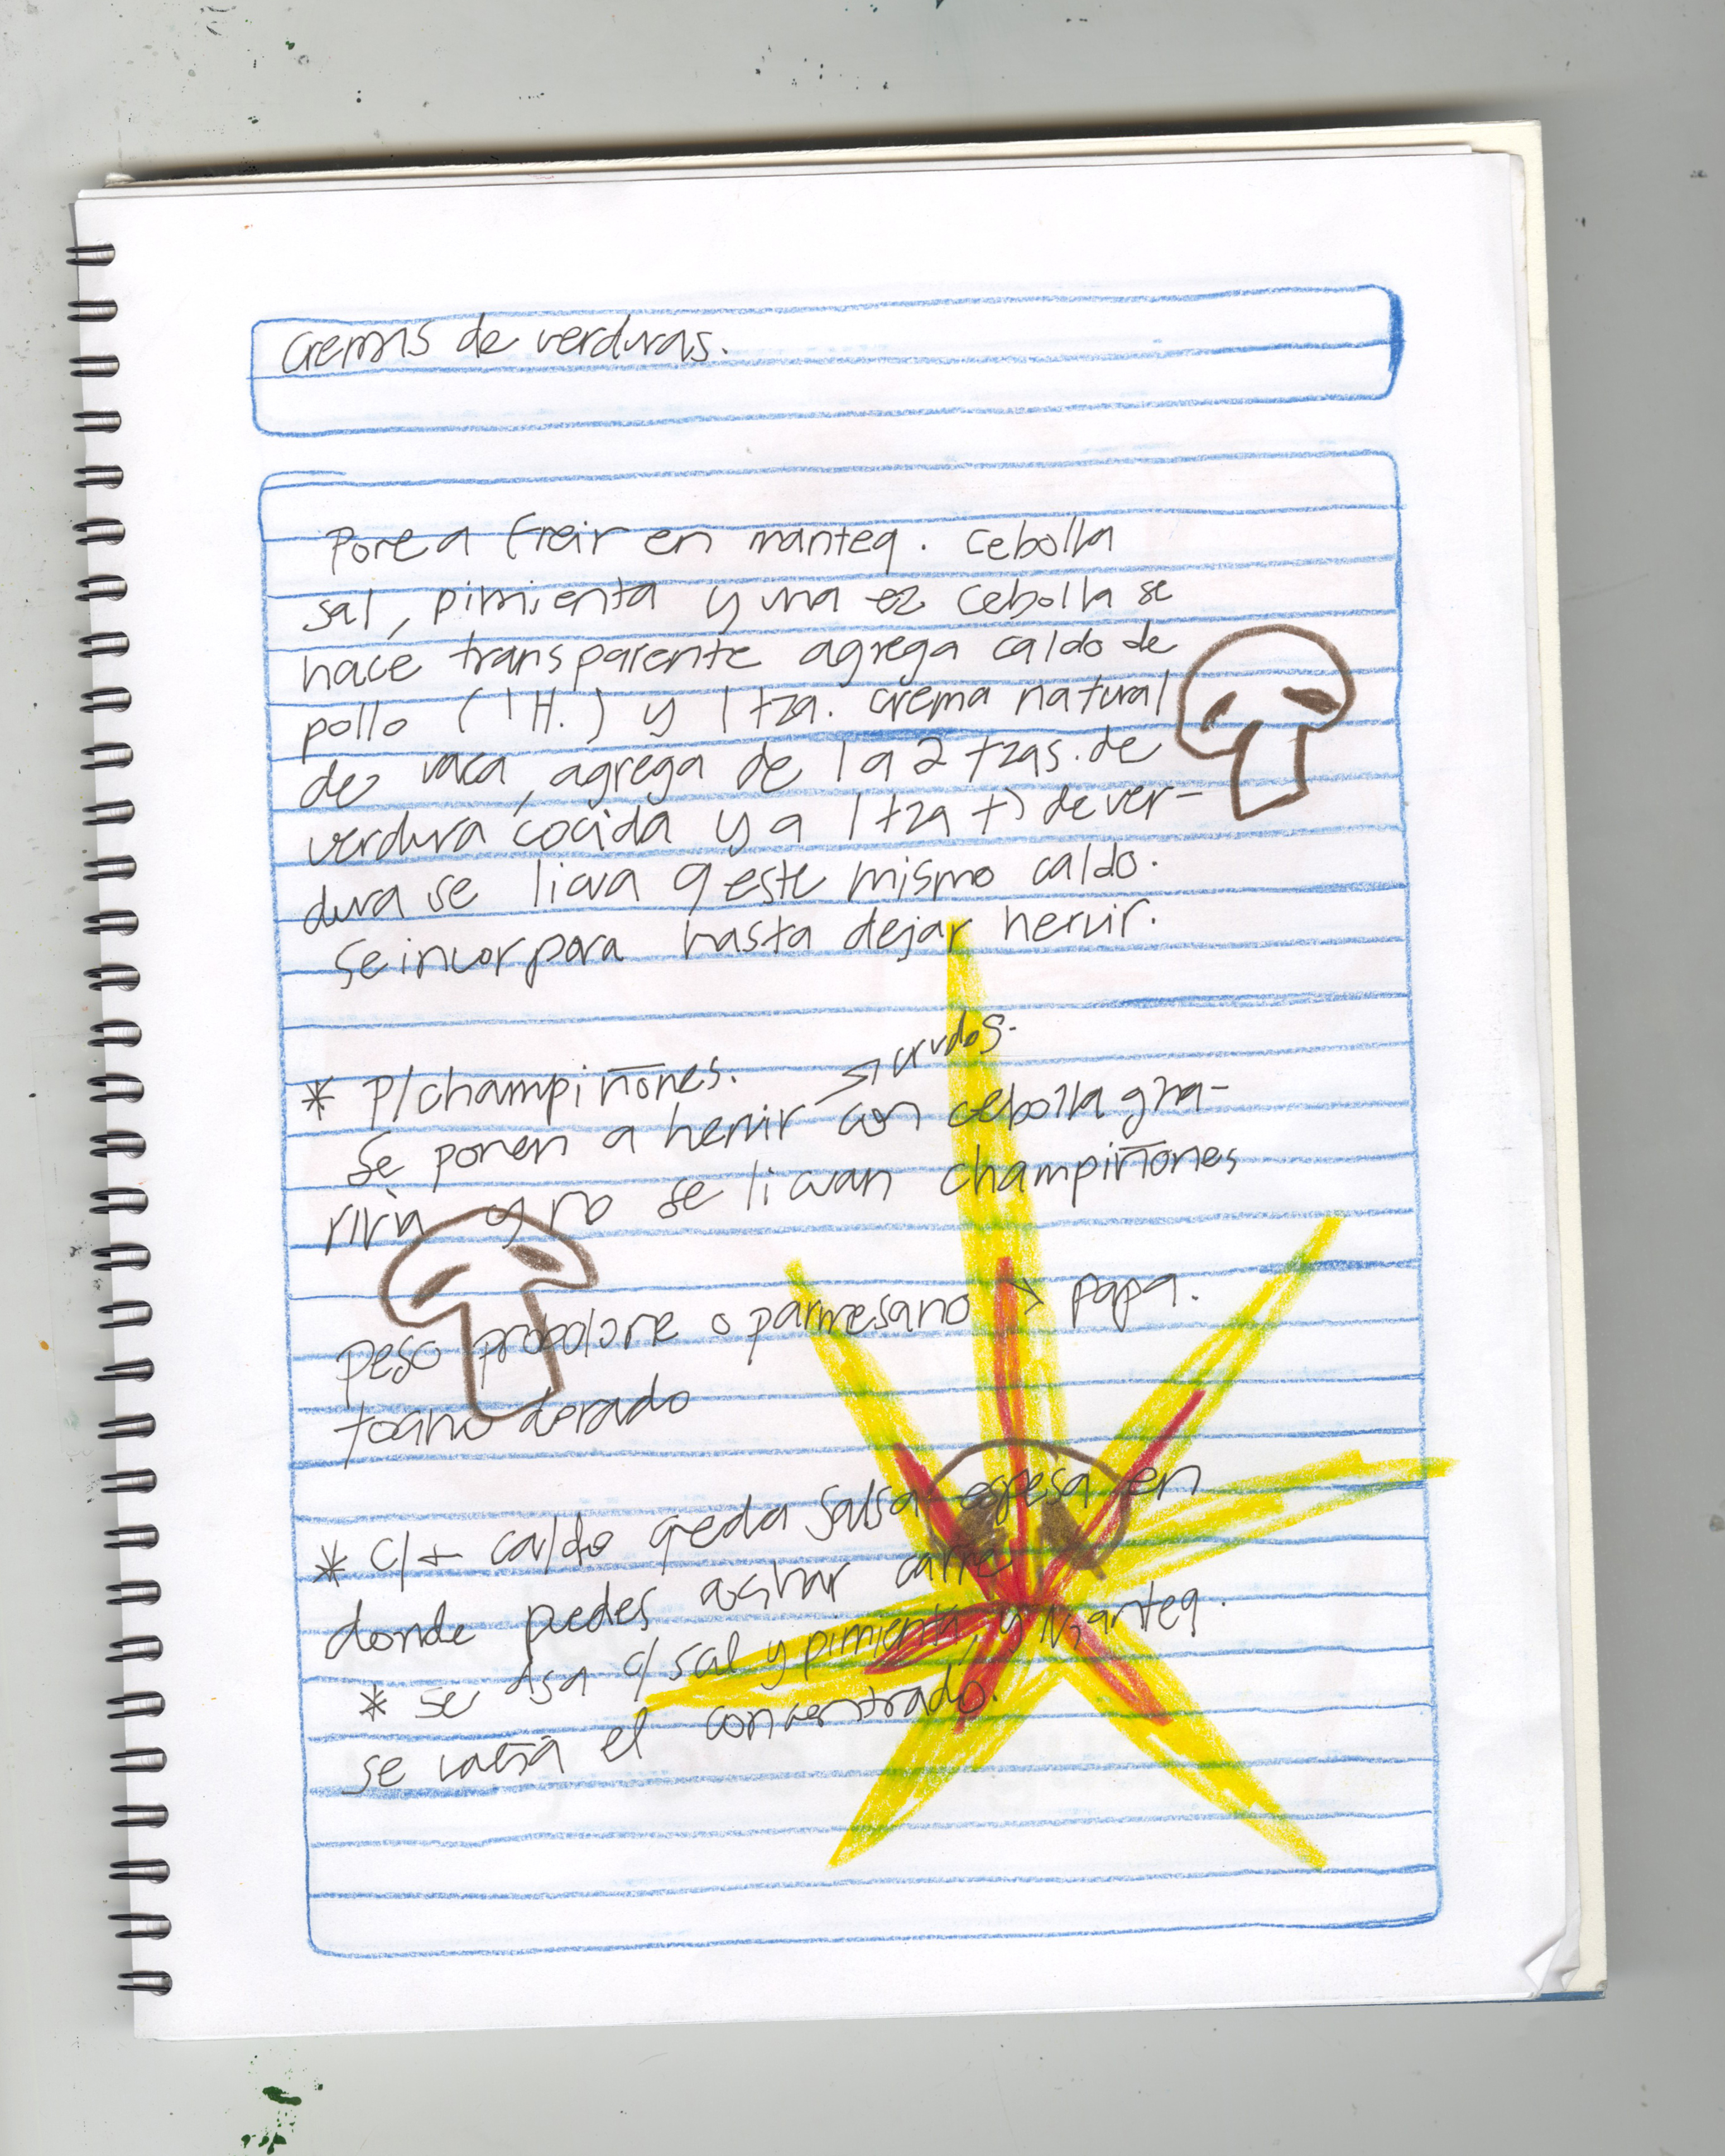 Cremas de verduras.
Pone a freir en manteq. cebolla
sal, pimienta y una ez cebolla se
hace transparente agrega caldo de
pollo (1H.) y 1 tza. crema natural
de vaca, agrega de 1 a 2 tzas. de
verdura cocida y a 1 tza de ver-
dura se licua q este mismo caldo.
Se incorpora hasta dejar hervir.
* P/champiñones.
crudos.
Se ponen a hervir con cebolla
y no se licuan champiñones
peso provolone o parmesano > papa.
tocino dorado
* c/+ caldo queda salsa espesa en
donde puedes acitronar carne
* se asa c/ sal y pimienta, y manteq.
se vacía el concentrado.